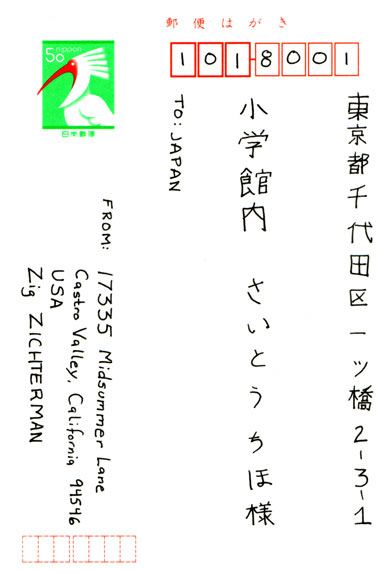 郵便はがき
50 nippon
日本郵便
101-8001
東京都千代田区一ツ橋2-3-1
小学館内 さいとうちほ様
TO: JAPAN
FROM: 17335 Midsummer Lane
Castro Valley, California 94546
USA
Zig ZICHTERMAN